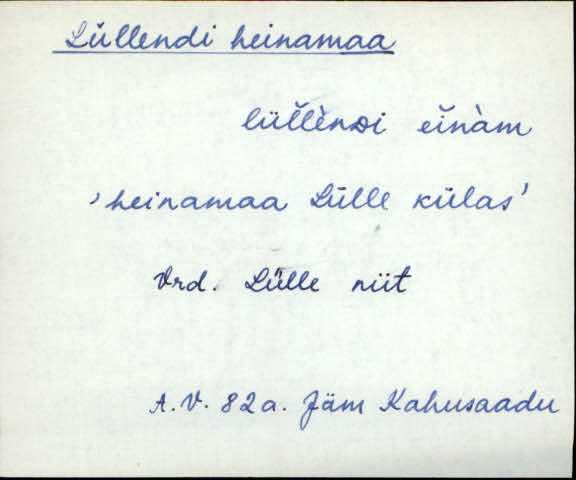 Lüllendi heinamaa
lül̆l̆ènᴅi eĭnàm
'heinamaa Lülle külas'
Vrd. Lülle niit
A.V. 82a. Jäm Kahusaadu